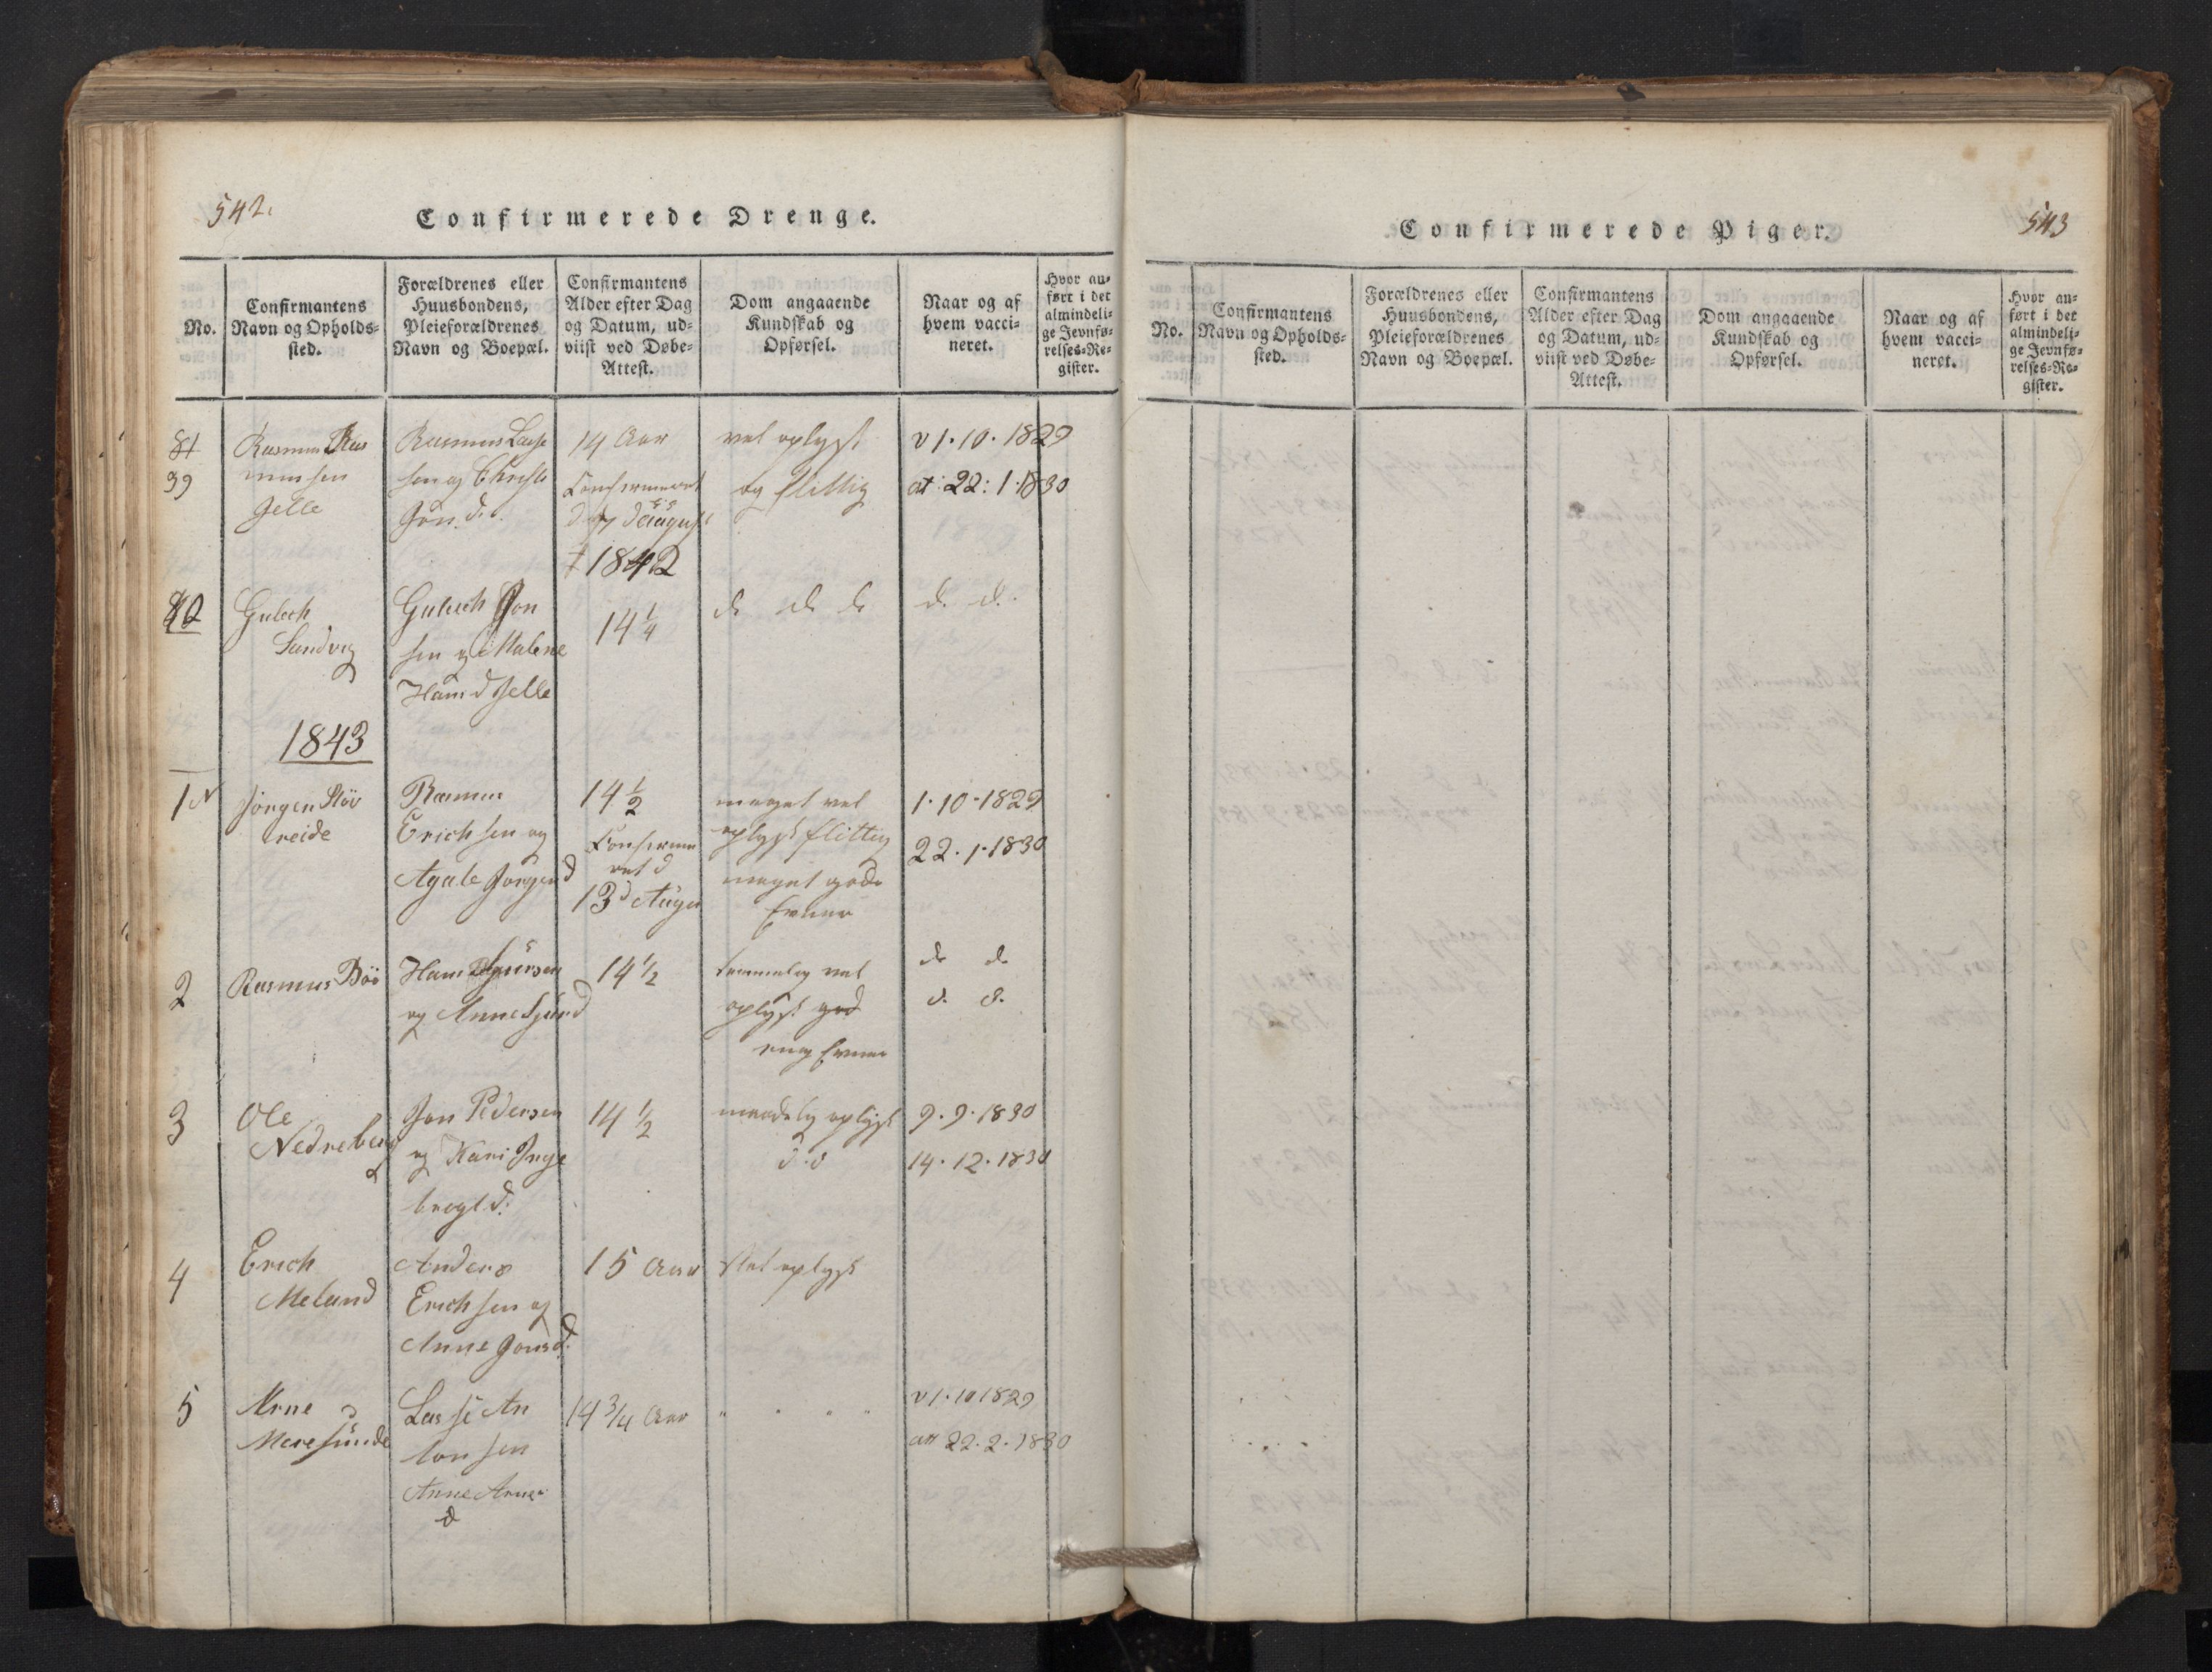 542.
Confirmerede Drenge.
No.
Confirmantens
Navn og Opholds-
sted.
Forældrenes eller
Huusbondens,
Pleieforældrenes
Navn og Boepæl.
Confirmantens
Alder efter Dag
og Datum, ud-
viist ved Døbe-
Attest.
Dom angaaende
Kundskab og
Opførsel.
Naar og af
hvem vacci-
neret.
Hvor an-
ført i det
almindeli-
ge Jevnfø-
relses-Re-
gister.
39
Rasmus Ras
mussen
Jelle
Rasmus Lasse
sen og
14 Aar
Confirmeret
1842
vel oplyst
og flittig
v 1. 10. 1829
at: 22: 1. 1830
Gulech
Sandvig
Gulech Jon
sen og Malene
Hans d Jelle
14 1/4
d. d. d.
d. d.
1843
1
Jörgen Stöv
reide
Rasmus
Erichsen og
Agate Jörgen d
14 1/2
Confirme
ret d
13 d Augu
meget vel
oplyst flittig
meget gode
Evner
1. 10. 1829
22. 1. 1830
2
Rasmus Böe
Hans
og Anne
14 1/2
temmelig vel
oplyst god
Evner
d. d.
d. d.
3
Ole
Nedreberg
Jon Pedersen
og Kari Inge
bregt d.
14 1/2
maadelig oplyst
d. d
9. 9. 1830
14. 12. 1830
4
Erich
Meland
Anders
Erichsen og
Anne Jonsd.
15 Aar
slet oplyst
5
Arne
Meresunde
Lasse An
tonsen
Anne Arne
d
14 3/4 Aar
" " " "
v 1. 10 1829
att 22. 2. 1830
Confirmerede Piger.
543
No.
Confirmantens
Navn og Opholds-
sted.
Forældrenes eller
Huusbondens,
Pleieforældrenes
Navn og Boepæl.
Confirmantens
Alder efter Dag
og Datum, ud-
viist ved Døbe-
Attest.
Dom angaaende
Kundskab og
Opførsel.
Naar og af
hvem vacci-
neret.
Hvor an-
ført i det
almindeli-
ge Jevnfø-
relses-Re-
gister.